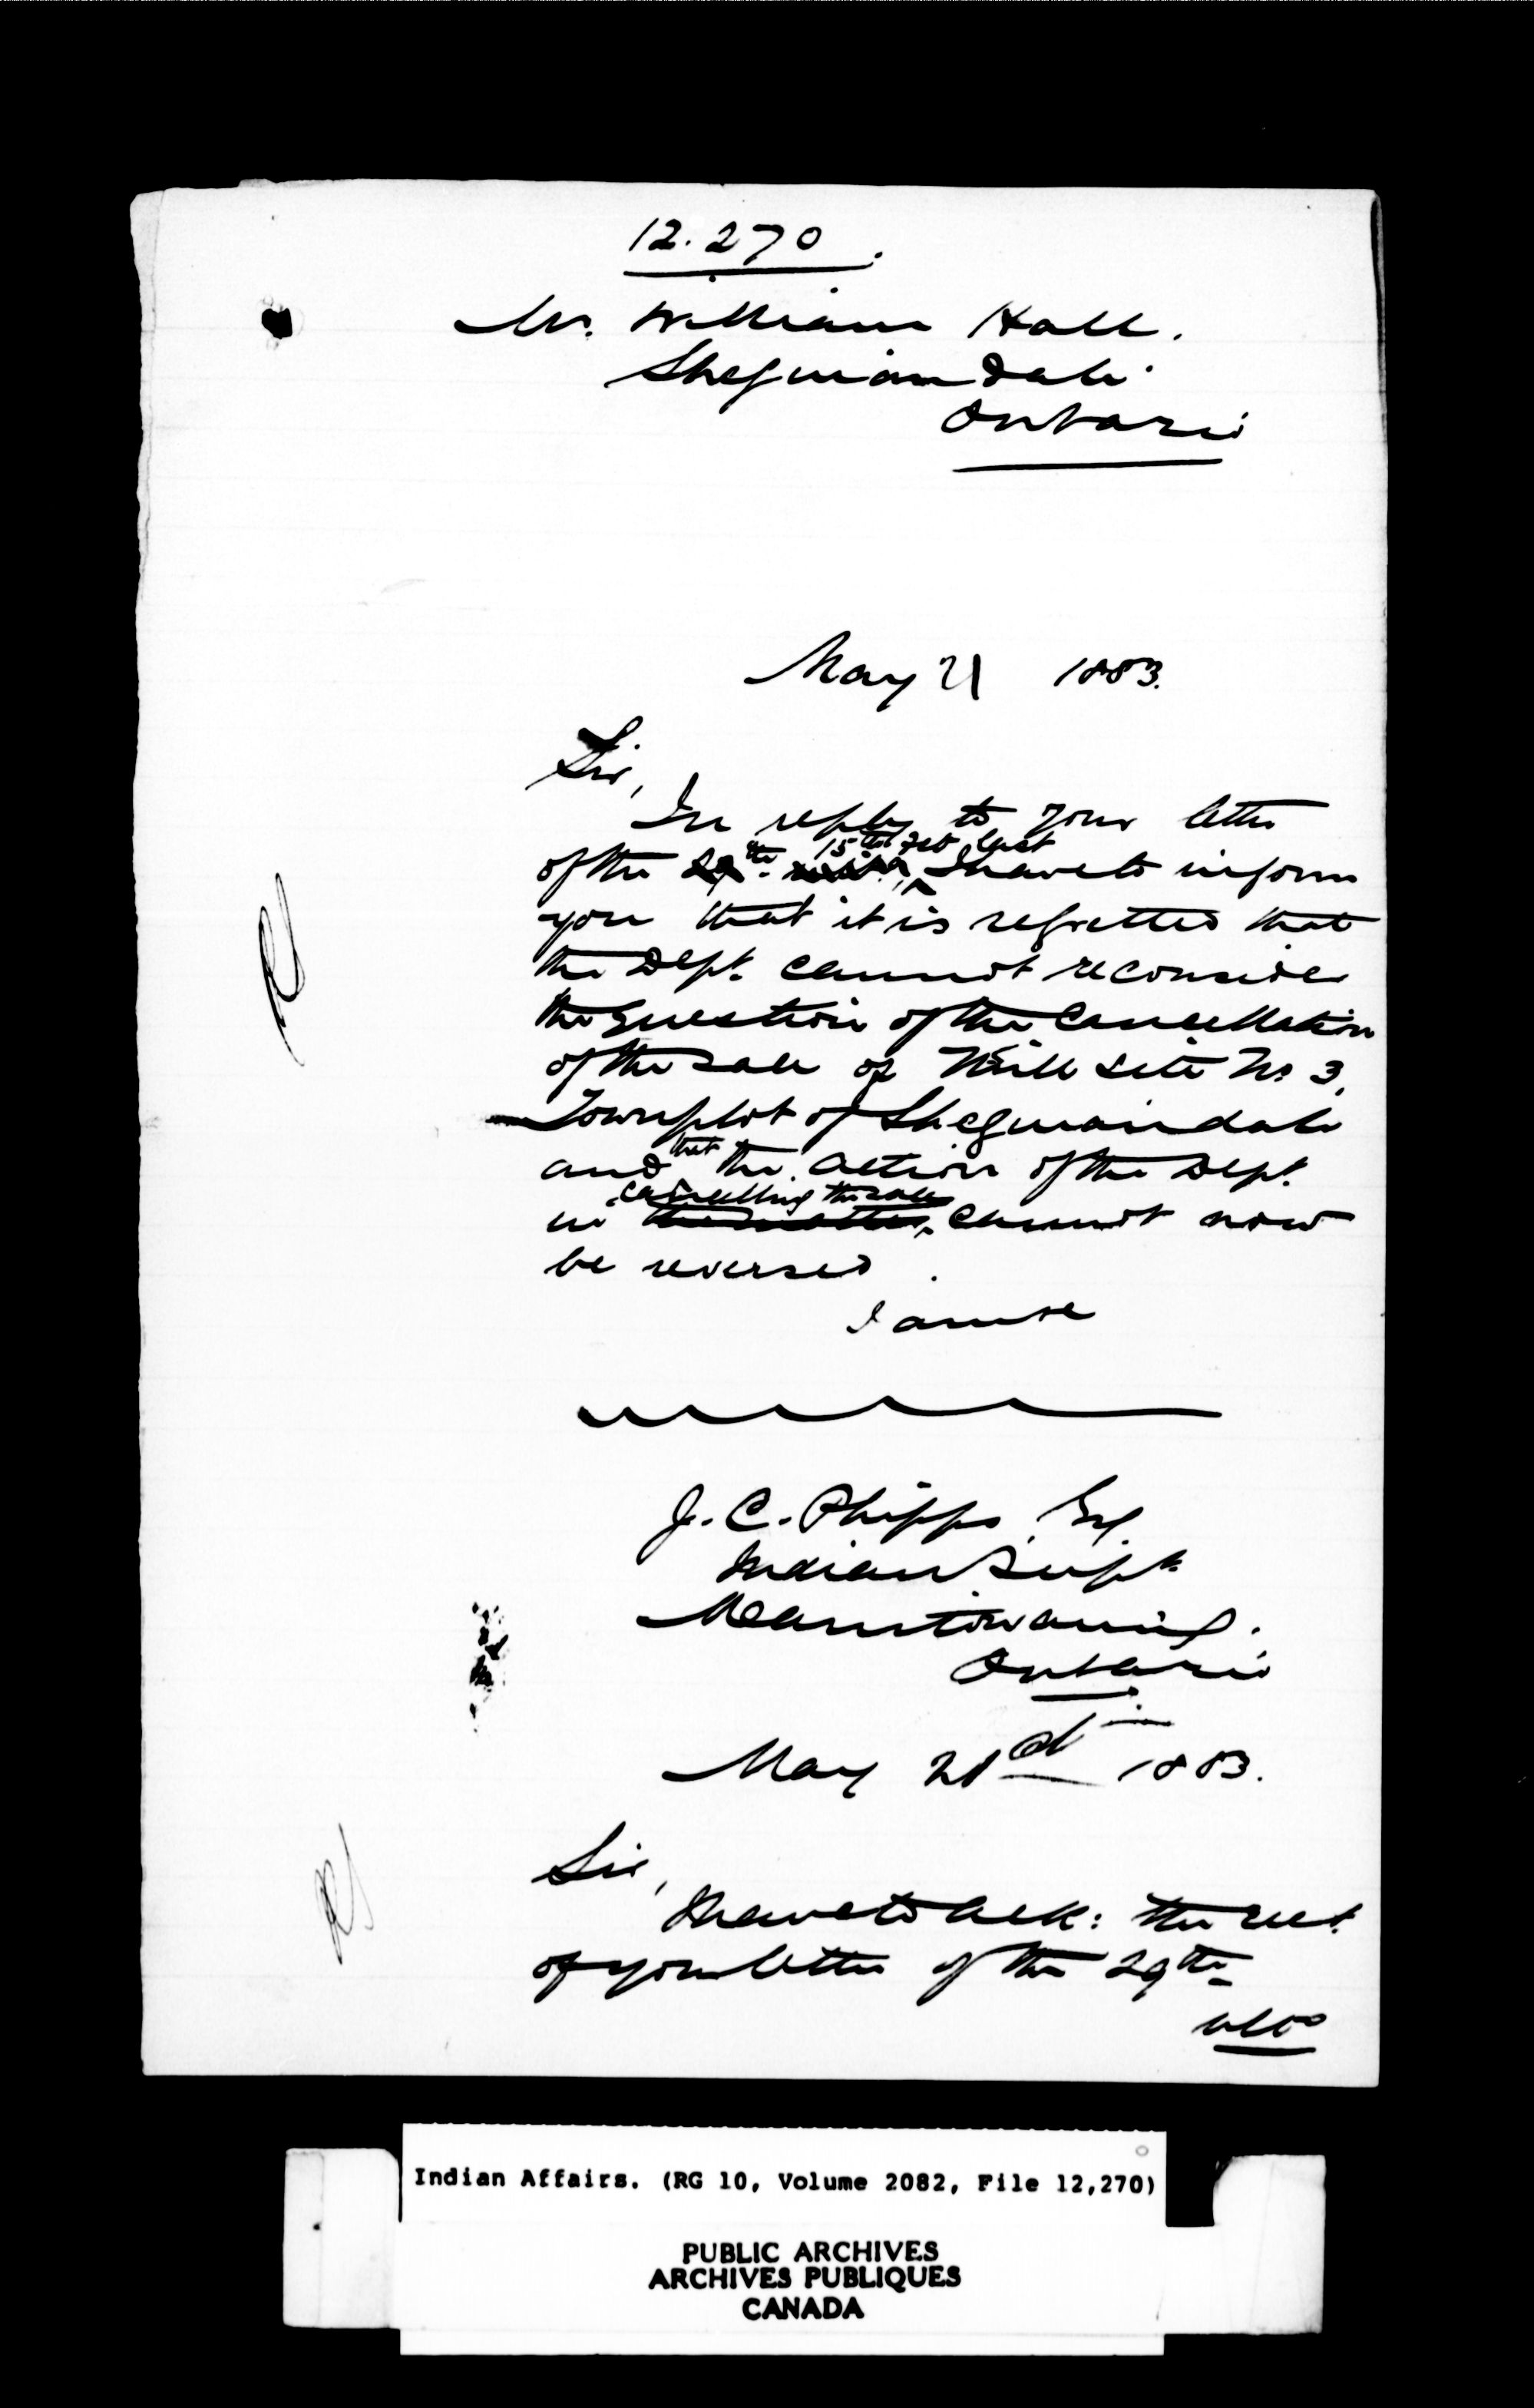 12.270.
Mr. William Hall.
Sheguiandah.
Ontario
May 21 1883.
Sir,
In reply to your letter
15th Feb last
of the 29th. ulto, I have to inform
you that it is regretted that
the Dept. cannot reconsider
the question of the Cancellation
of the sale of Mill Site No. 3,
Townplot of Sheguiandah
and that the action of the Dept.
cancelling the sale
in the matter, cannot now
be reversed.
I am Sir
J. C. Phipps, Esq.
Indian Supt.
Manitowaning.
Ontario
May 21st 1883.
Sir,
I have to ack: the rect.
of your letter of the 29th
ulto
Indian Affairs. (RG 10, Volume 2082, File 12,270)
PUBLIC ARCHIVES
ARCHIVES PUBLIQUES
CANADA